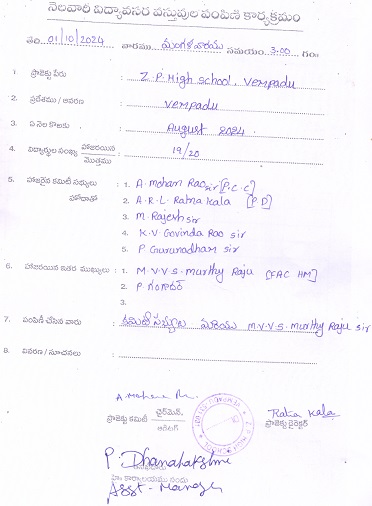 నెలవారీ విద్యావసర వస్తువుల పంపిణీ కార్యక్రమం
తేది 01/10/2024 వారము మంగళవారము సమయం 3:00 గం॥
1. ప్రాజెక్టు పేరు : Z.P. High School, Vempadu
2. ప్రదేశము / ఆవరణ : Vempadu
3. ఏ నెల కొరకు : August 2024
4. విద్యార్థుల సంఖ్య హాజరయిన / మొత్తము : 19/20
5. హాజరైన కమిటీ సభ్యులు : 1. A. Mohan Rao sir [P.C.C]
హోదాతో 2. A.R.L. Ratna Kala [P D]
3. M. Rajesh sir
4. K.V. Govinda Rao sir
5. P Gurunadham sir
6. హాజరయిన ఇతర ముఖ్యులు : 1. M.V.V.S. Murthy Raju [FAC HM]
2. P. గంగాధర్
3.
7. పంపిణీ చేసిన వారు : కమిటీ సభ్యులు మరియు M.V.V.S. Murthy Raju sir
8. వివరణ / సూచనలు :
ప్రాజెక్టు కమిటీ చైర్‌మెన్
Ratna Kala
ప్రాజెక్టు డైరెక్టర్
P. Dhanalakshmi
హెం కార్యాలయము నందు
Asst. Manager